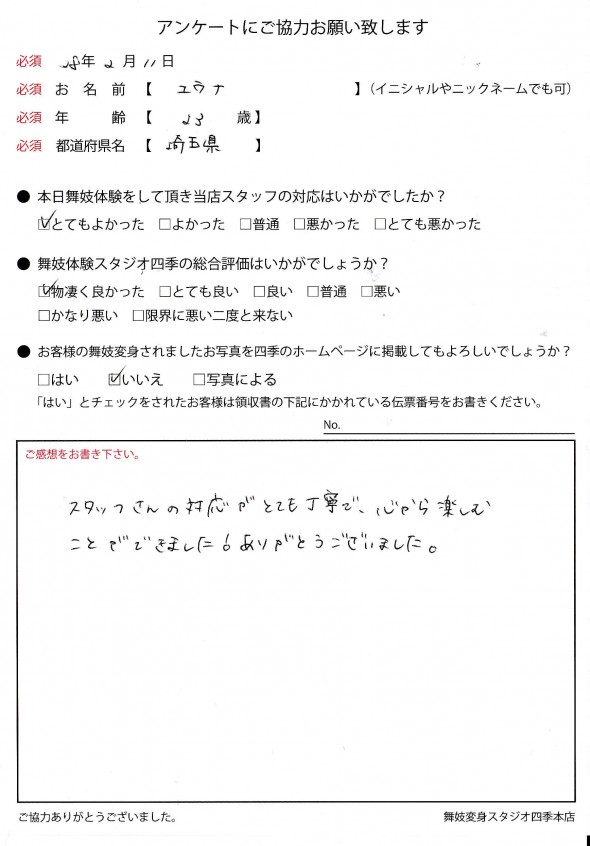 アンケートにご協力お願い致します
必須 28年 2月 11日
必須 お名前【 ユウナ 】(イニシャルやニックネームでも可)
必須 年齢【 23 歳】
必須 都道府県名【 埼玉県 】
● 本日舞妓体験をして頂き当店スタッフの対応はいかがでしたか?
☑とてもよかった □よかった □普通 □悪かった □とても悪かった
● 舞妓体験スタジオ四季の総合評価はいかがでしょうか?
☑物凄く良かった □とても良い □良い □普通 □悪い
□かなり悪い □限界に悪い二度と来ない
● お客様の舞妓変身されましたお写真を四季のホームページに掲載してもよろしいでしょうか?
□はい ☑いいえ □写真による
「はい」とチェックをされたお客様は領収書の下記にかかれている伝票番号をお書きください。
No.
ご感想をお書き下さい。
スタッフさんの対応がとても丁寧で、心から楽しむ
ことができました!ありがとうございました。
ご協力ありがとうございました。 舞妓変身スタジオ四季本店